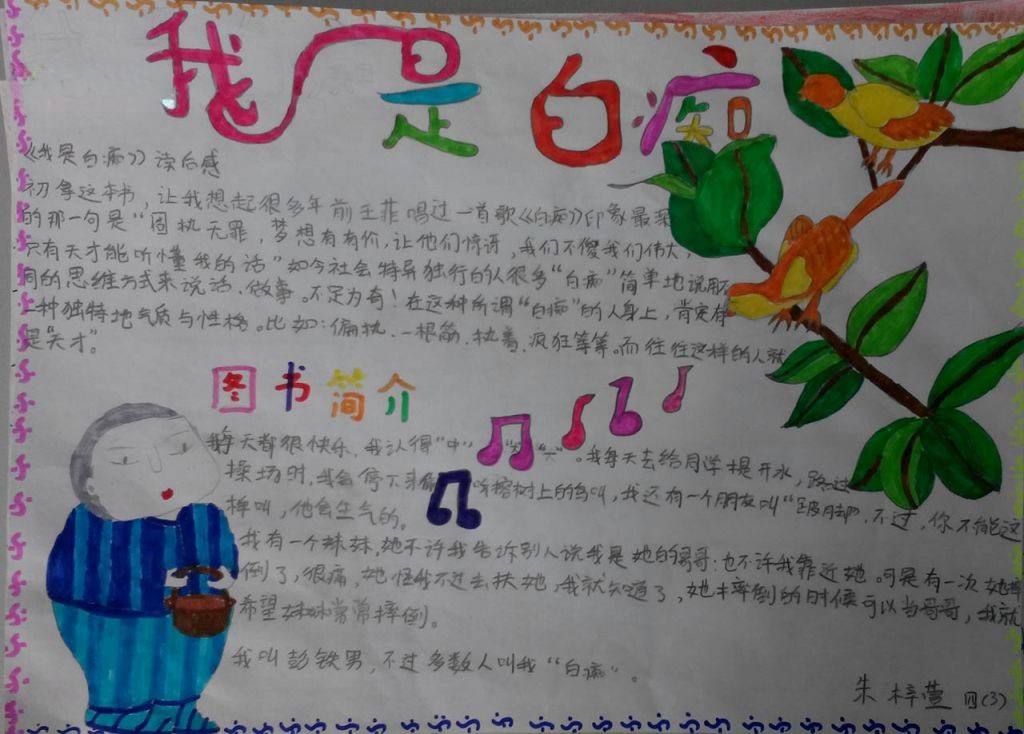 我是白痴
《我是白痴》读后感
初拿这本书，让我想起很多年前王菲唱过一首歌《白痴》印象最深
的那一句是“固执无罪，梦想有有价，让他们惊讶，我们不傻我们伟大，
只有天才能听懂我的话”如今社会特异独行的人很多“白痴”简单地说用不
同的思维方式来说话、做事。不足为奇！在这种所谓“白痴”的人身上，肯定有
一种独特地气质与性格。比如：偏执、一根筋、执着、疯狂等等。而往往这样的人就
是“天才”。
图书简介
我每天都很快乐，我认得“中”“大”。我每天去给同学提开水，路过
操场时，我会停下来听榕树上的鸟叫，我还有一个朋友叫“跛脚”，不过，你不能这
样叫，他会生气的。
我有一个妹妹，她不许我告诉别人说我是她的哥哥：也不许我靠近她。可是有一次她摔
倒了，很痛，她怪我不过去扶她，我就知道了，她摔倒的时候可以当哥哥，我就
希望妹妹常常摔倒。
我叫彭铁男，不过多数人叫我“白痴”。
朱梓萱 四(3)